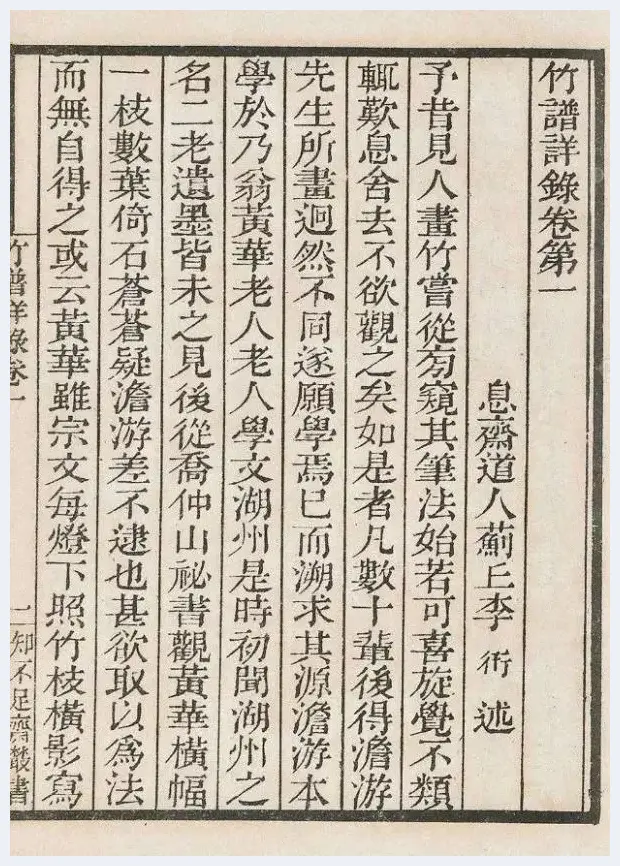 竹譜詳錄卷第一
息齋道人薊丘李衎述
予昔見人畫竹嘗從旁窺其筆法始若可喜旋覺不類
輒歎息舍去不欲觀之矣如是者凡數十輩後得澹游
先生所畫迥然不同遂願學焉已而溯求其源澹游本
學於乃翁黃華老人老人學文湖州是時初聞湖州之
名二老遺墨皆未之見後從喬仲山祕書觀黃華橫幅
一枝數葉倚石蒼蒼疑澹游差不逮也甚欲取以為法
而無自得之或云黃華雖宗文每燈下照竹枝橫影寫
竹譜詳錄卷一
一
知不足齋叢書